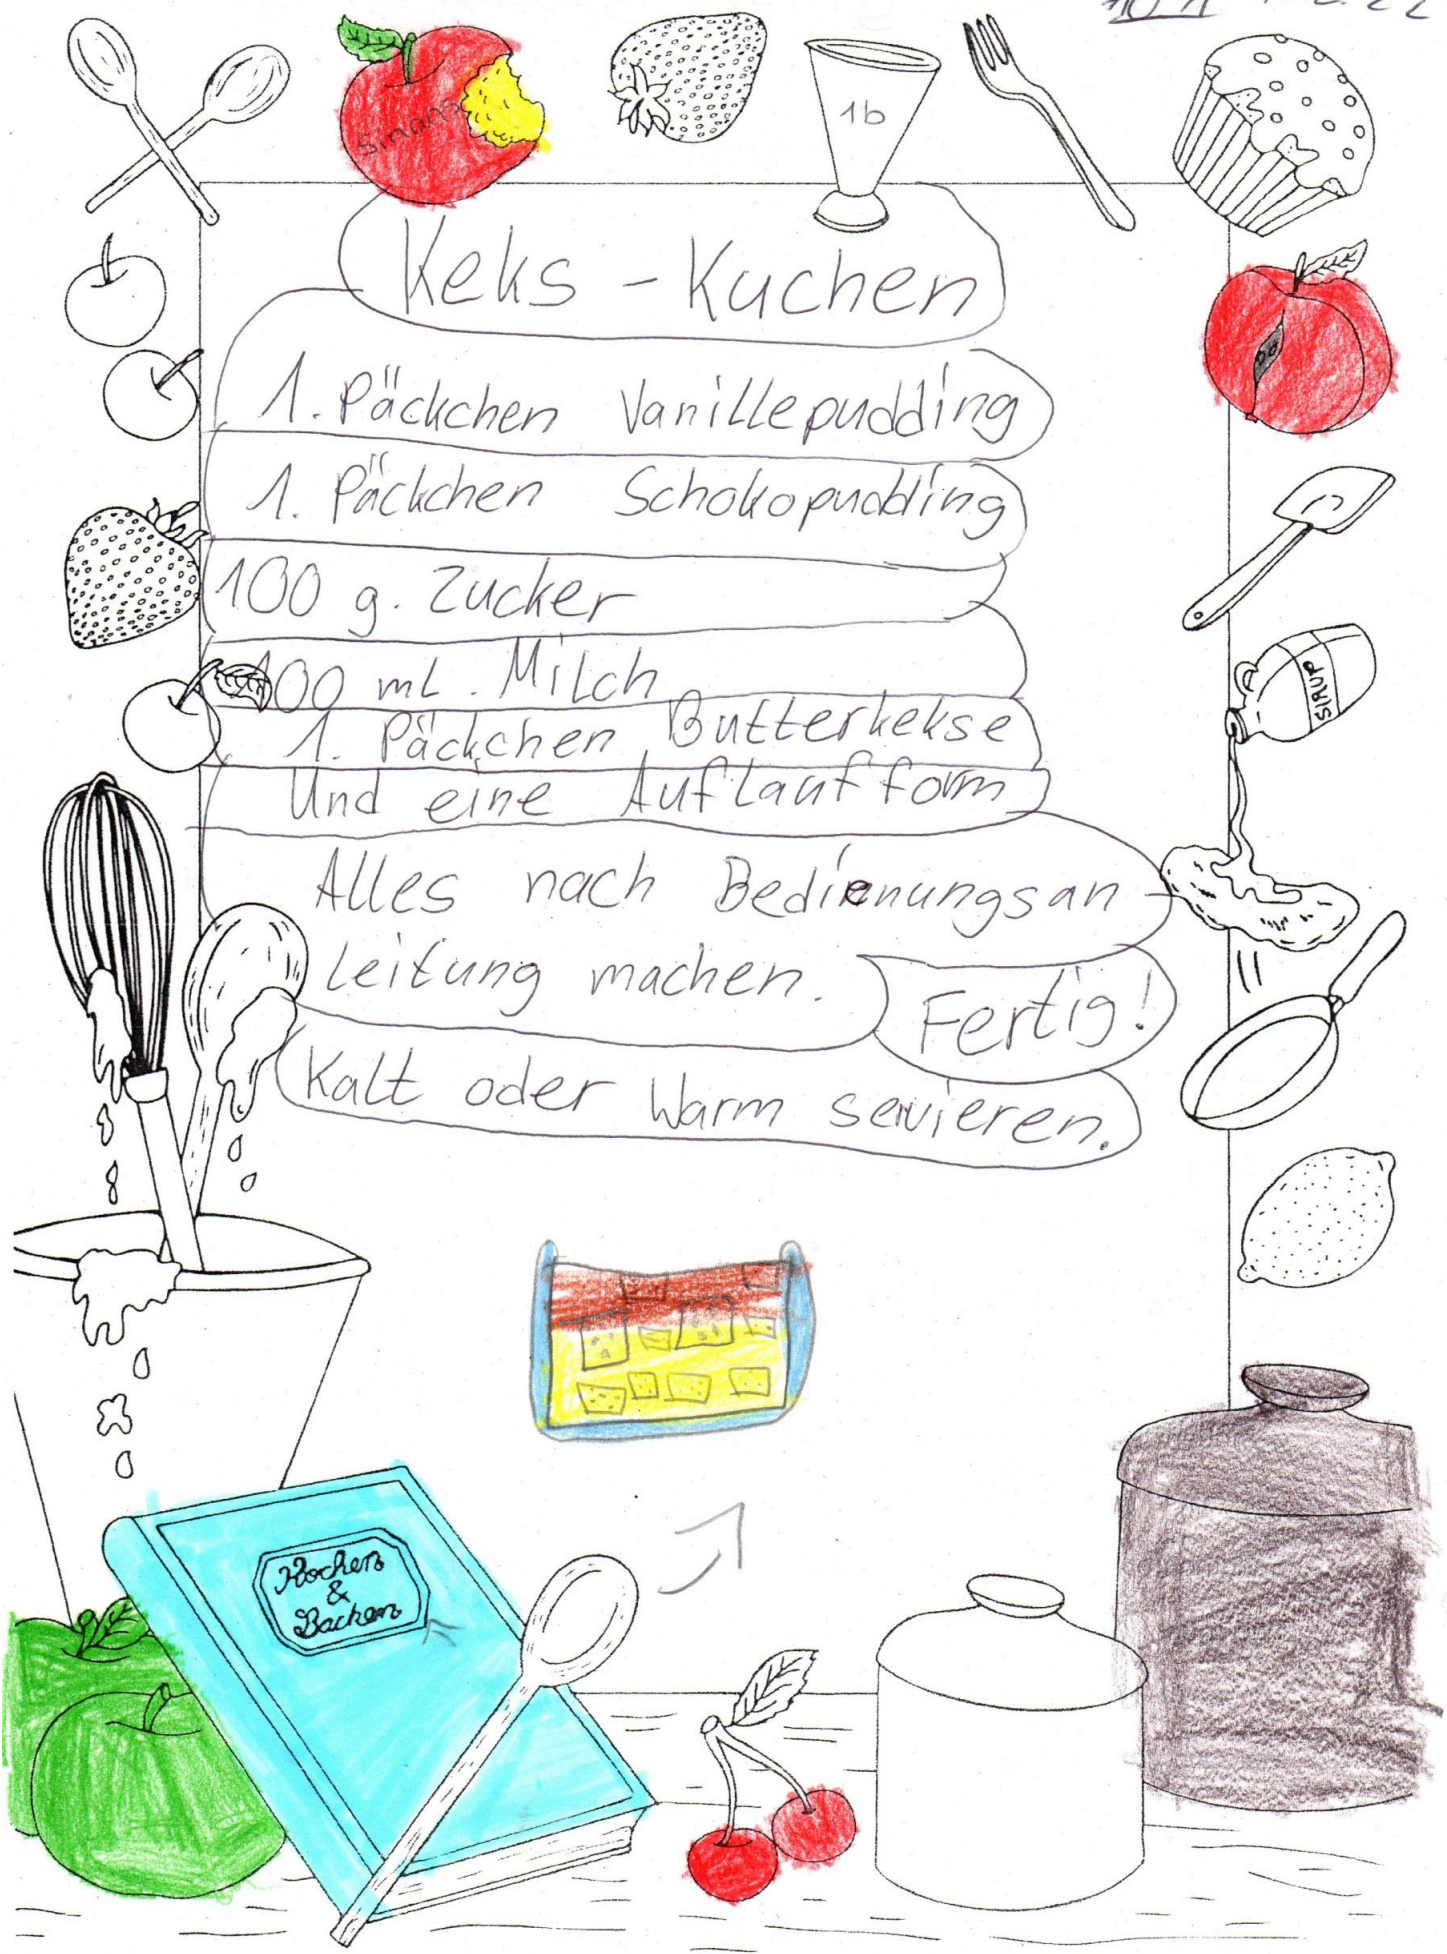 Sinans
1b
Keks - Kuchen
1. Päckchen Vanillepudding
1. Päckchen Schokopudding
100 g. Zucker
100 ml. Milch
1. Päckchen Butterkekse
Und eine Auflaufform
Alles nach Bedienungsan
leitung machen.
Fertig!
Kalt oder Warm servieren.
SIRUP
Kochen
&
Backen